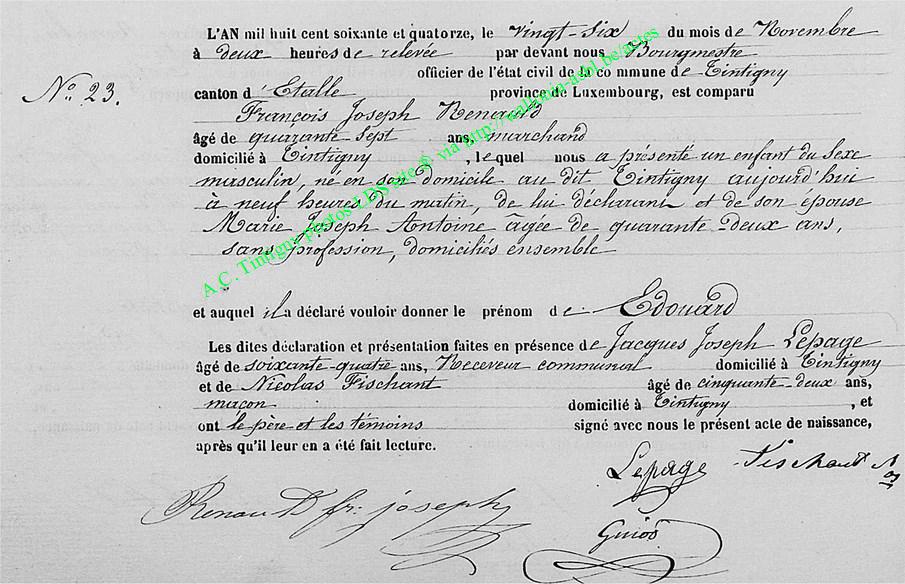 L'AN mil huit cent soixante et quatorze, le vingt-six du mois de Novembre
à deux heures de relevée par devant nous Bourgmestre
officier de l'état civil de la commune de Tintigny
N° 23.
canton d'Etalle province de Luxembourg, est comparu
François Joseph Renauld
âgé de quarante sept ans, marchand
domicilié à Tintigny, lequel nous a présenté un enfant du sexe
masculin, né en son domicile au dit Tintigny aujourd'hui
à neuf heures du matin, de lui déclarant et de son épouse
Marie Joseph Antoine âgée de quarante-deux ans,
sans profession, domiciliés ensemble
et auquel il a déclaré vouloir donner le prénom de Edouard
Les dites déclaration et présentation faites en présence de Jacques Joseph Lepage
âgé de soixante-quatre ans, Receveur communal domicilié à Tintigny
et de Nicolas Fischant âgé de cinquante-deux ans,
maçon domicilié à Tintigny, et
ont le père et les témoins signé avec nous le présent acte de naissance,
après qu'il leur en a été fait lecture.
Lepage Fischant
Renauld fr. joseph
A.C. Tintigny photos LDS site © via http://wallonia-asbl.be/actes